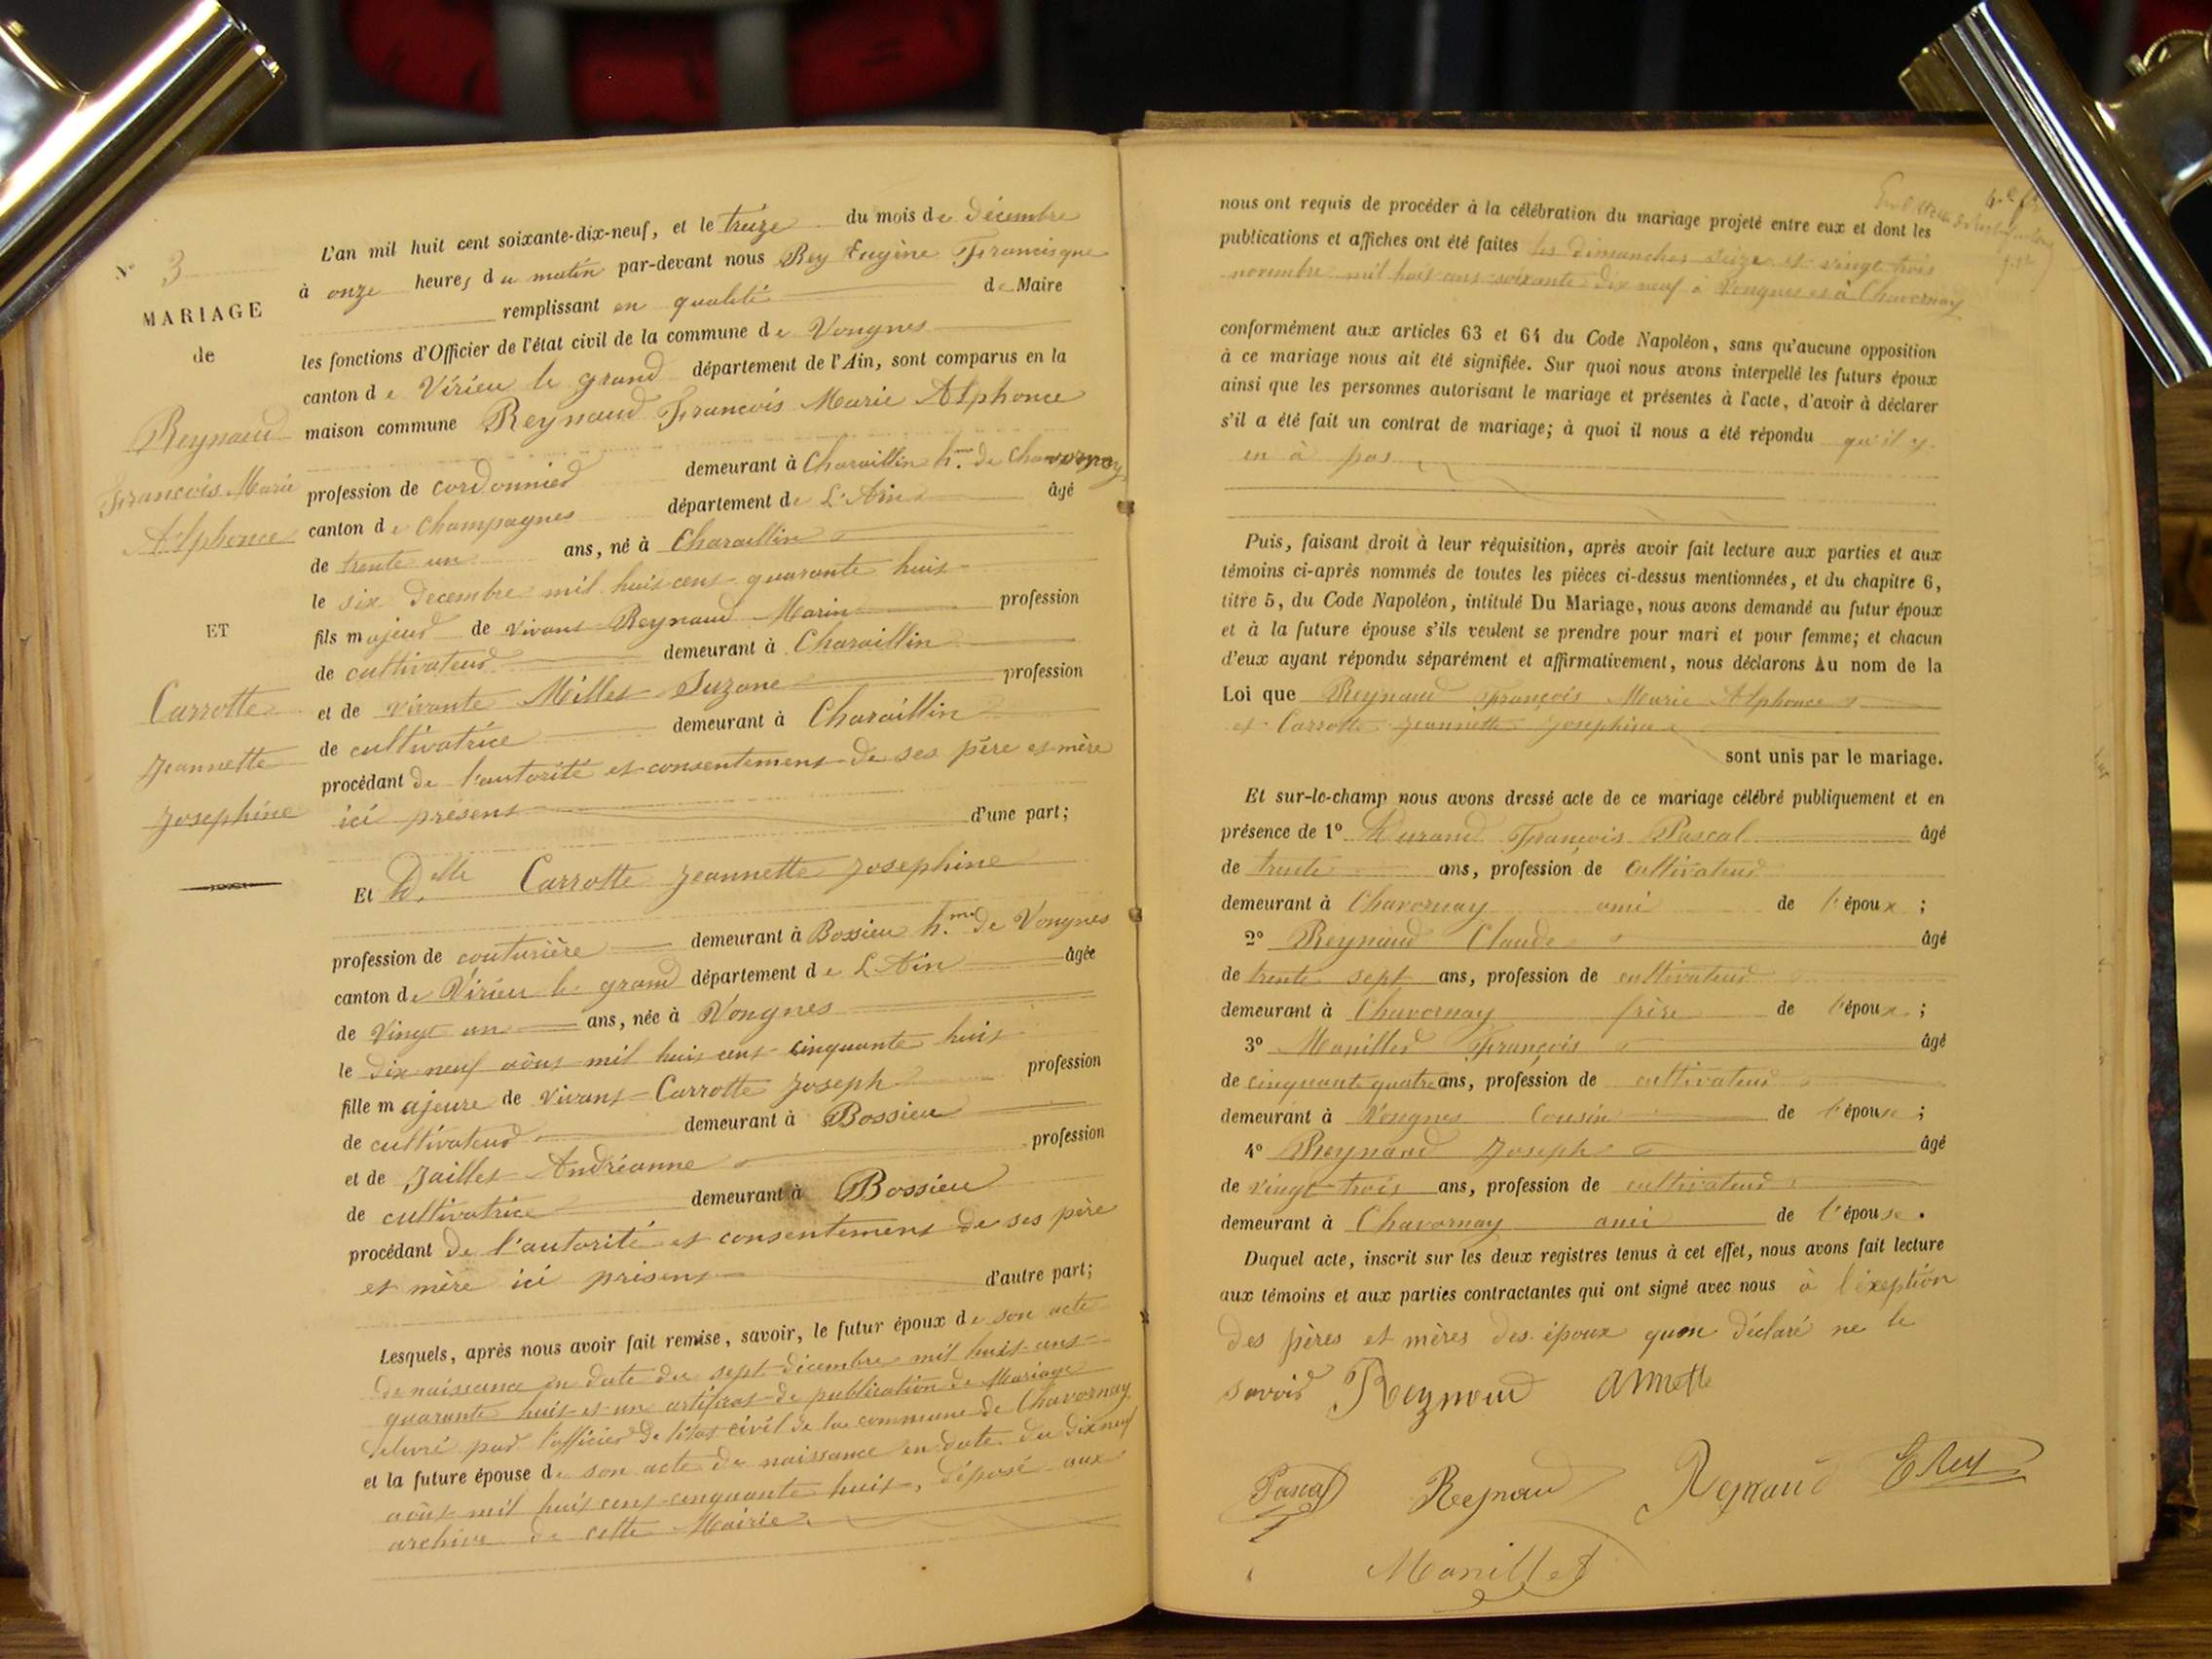 N° 3
MARIAGE
de
Reynaud
François Marie
Alphonce
ET
Carrotte
Jeannette
Josephine
L'an mil huit cent soixante-dix-neuf, et le treize du mois de décembre
à onze heures du matin par-devant nous Rey Eugène Francisque
remplissant en qualité de Maire
les fonctions d'Officier de l'état civil de la commune de Vongnes
canton de Virieu le grand département de l'Ain, sont comparus en la
maison commune Reynaud François Marie Alphonce
profession de cordonnier demeurant à Charaillin h.me de Chavornay
canton de Champagnes département de L'Ain âgé
de trente un ans, né à Charaillin
le six Decembre mil huit cent quarante huit
fils majeur de vivant Reynaud Marin profession
de cultivateur demeurant à Charaillin
et de vivante Millet Suzane profession
de cultivatrice demeurant à Charaillin
procédant de l'autorité et consentement de ses père et mère
ici présent d'une part;
Et D.elle Carrotte Jeannette Josephine
profession de couturière demeurant à Bossieu h.me de Vongnes
canton de Virieu le grand département de L'Ain âgée
de Vingt un ans, née à Vongnes
le dix neuf aôut mil huit cent cinquante huit
fille majeure de vivant Carrotte Joseph profession
de cultivateur demeurant à Bossieu
et de Jaillet Andréanne profession
de cultivatrice demeurant à Bossieu
procédant de l'autorité et consentement de ses père
et mère ici présent d'autre part;
Lesquels, après nous avoir fait remise, savoir, le futur époux de son acte
de naissance en date du sept décembre mil huit cent
quarante huit et un artificat de publication de Mariage
délivré par l'officier de l'état civil de la commune de Chavornay
et la future épouse de son acte de naissance en date du dix neuf
aôut mil huit cent cinquante huit, déposé aux
archive de cette Mairie
nous ont requis de procéder à la célébration du mariage projeté entre eux et dont les
publications et affiches ont été faites les dimanches seize et vingt trois
novembre mil huit cent soixante dix neuf à Vongnes et à Chavornay
conformément aux articles 63 et 64 du Code Napoléon, sans qu'aucune opposition
à ce mariage nous ait été signifiée. Sur quoi nous avons interpellé les futurs époux
ainsi que les personnes autorisant le mariage et présentes à l'acte, d'avoir à déclarer
s'il a été fait un contrat de mariage; à quoi il nous a été répondu qu'il y
en à pas
Puis, faisant droit à leur réquisition, après avoir fait lecture aux parties et aux
témoins ci-après nommés de toutes les pièces ci-dessus mentionnées, et du chapitre 6,
titre 5, du Code Napoléon, intitulé Du Mariage, nous avons demandé au futur époux
et à la future épouse s'ils veulent se prendre pour mari et pour femme; et chacun
d'eux ayant répondu séparément et affirmativement, nous déclarons Au nom de la
Loi que Reynaud François Marie Alphonce
et Carrotte Jeannette Josephine
sont unis par le mariage.
Et sur-le-champ nous avons dressé acte de ce mariage célébré publiquement et en
présence de 1° Durand François Pascal âgé
de trente ans, profession de cultivateur
demeurant à Chavornay ami de l'époux ;
2° Reynaud Claude âgé
de trente sept ans, profession de cultivateur
demeurant à Chavornay frère de l'époux ;
3° Manillet François âgé
de cinquante quatre ans, profession de cultivateur
demeurant à Vongnes Cousin de l'épouse ;
4° Reynaud Joseph âgé
de vingt trois ans, profession de cultivateur
demeurant à Chavornay ami de l'épouse .
Duquel acte, inscrit sur les deux registres tenus à cet effet, nous avons fait lecture
aux témoins et aux parties contractantes qui ont signé avec nous à l'exeption
des pères et mères des époux quon déclaré ne le
savoir Reynaud annette
Pascal Reynau Reynaud E Rey
Manillet